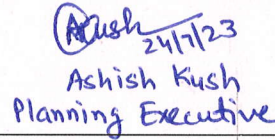 AKush
24/7/23
Ashish Kush
Planning Executive